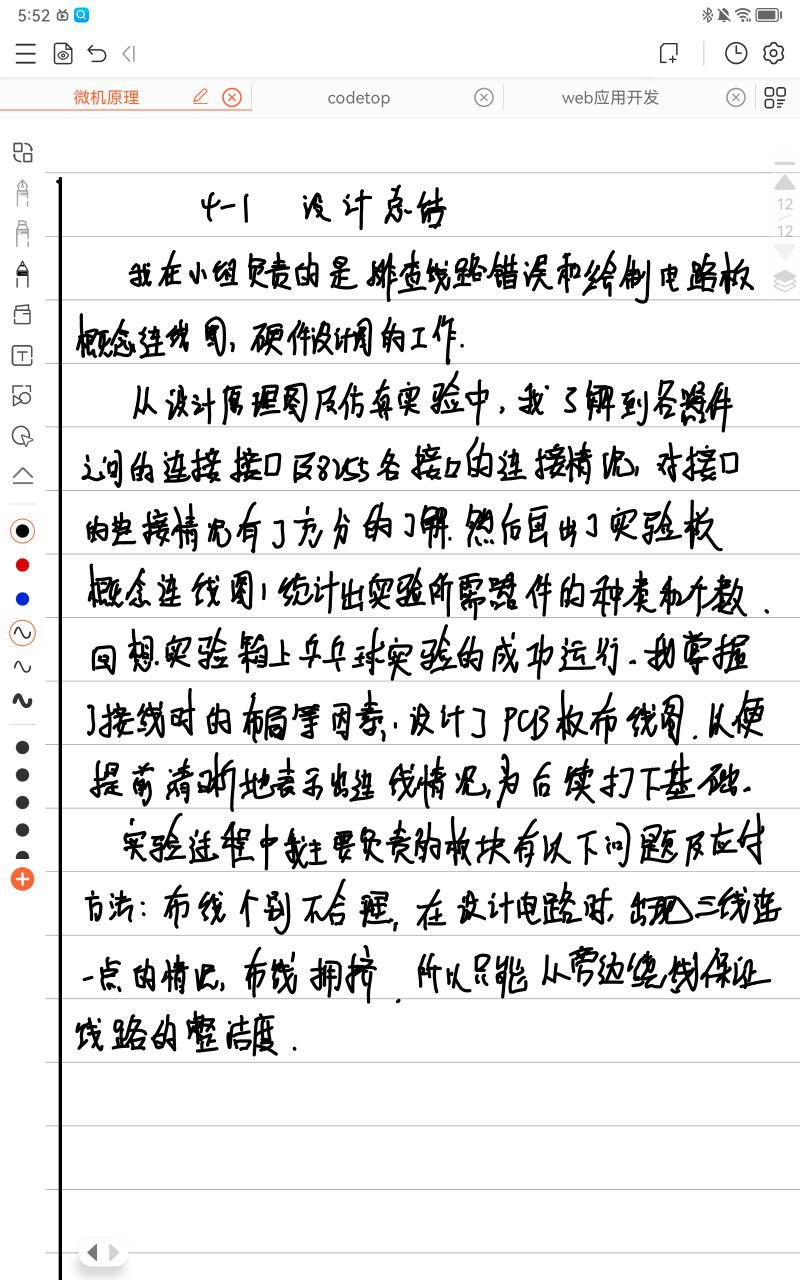 5:52
微机原理
codetop
web应用开发
12
12
4-1 设计总结
我在小组负责的是排查线路错误和绘制电路板
概念连线图,硬件设计图的工作.
从设计原理图及仿真实验中,我了解到各器件
之间的连接接口及8255各接口的连接情况,对接口
的连接情况有了充分的了解.然后画出了实验板
概念连线图,统计出实验所需器件的种类和个数.
回想实验箱上乒乓球实验的成功运行.我掌握
了接线时的布局等因素,设计了PCB板布线图.以便
提前清晰地表示出连线情况,为后续打下基础.
实验过程中我主要负责的板块有以下问题及应付
方法:布线个别不合理,在设计电路时,出现三线连
一点的情况,布线拥挤.所以只能从旁边绕线保证
线路的整洁度.